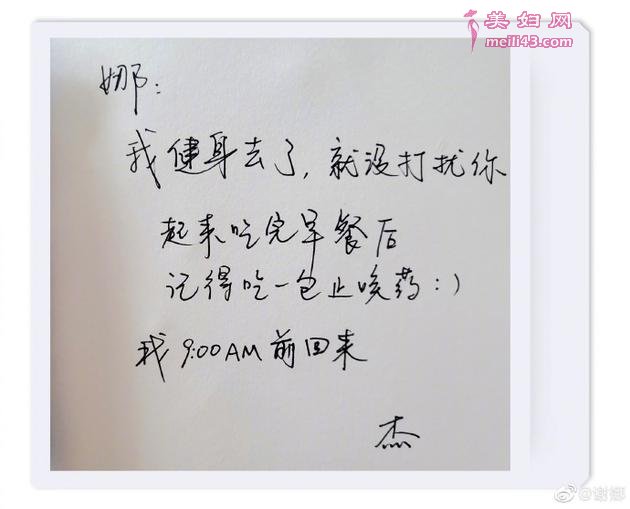 美妇网
meili43.com
娜：
我健身去了，就没打扰你
起来吃完早餐后
记得吃一包止咳药：）
我9:00AM前回来
杰
@谢娜